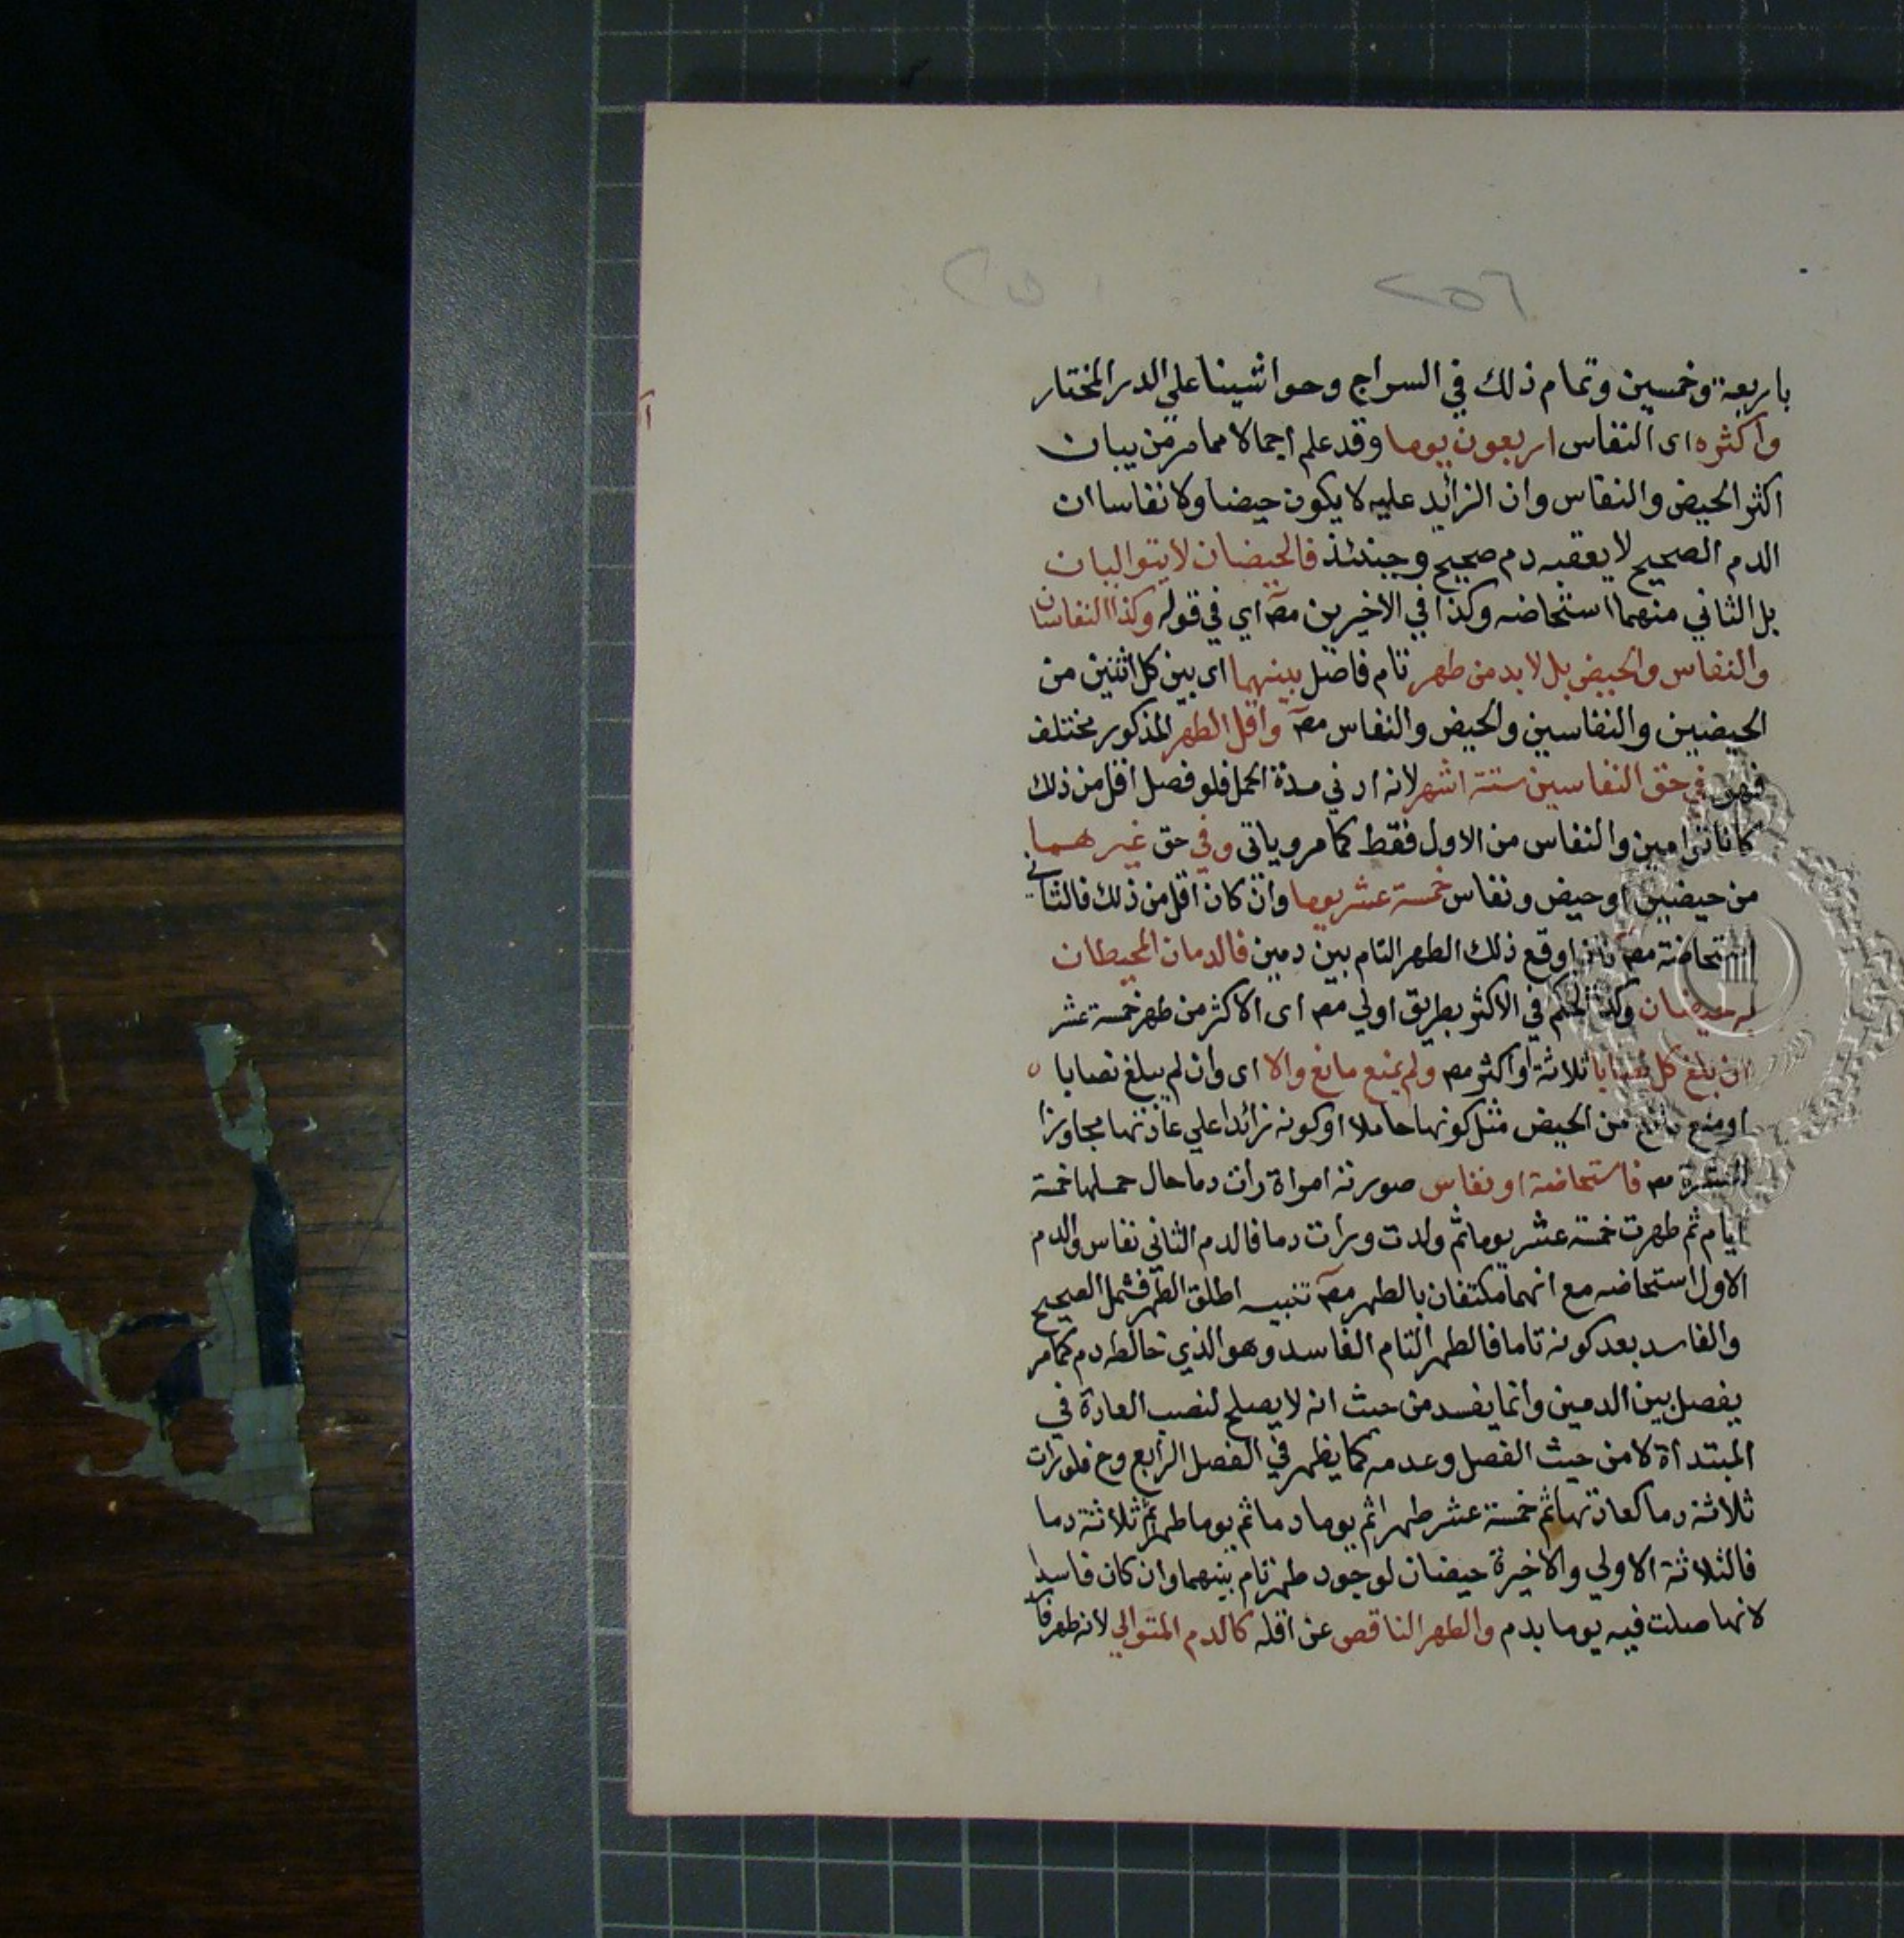 ٢٥٦
٢٥١
باربعة وخمسين وتمام ذلك في السراج وحواشينا علي الدر المختار
واكثره اى النفاس اربعون يوما وقد علم اجمالا مما مر من بيان
اكثر الحيض والنفاس وان الزائد عليه لا يكون حيضا ولا نفاسا ان
الدم الصحيح لا يعقبه دم صحيح وحينئذ فالحيضان لا يتواليان
بل الثاني منهما استحاضه وكذا في الاخيرين مصـ اي في قوله وكذا النفاسان
والنفاس والحيض بل لا بد من طهر تام فاصل بينهما اى بين كل اثنين من
الحيضين والنفاسين والحيض والنفاس مصـ واقل الطهر المذكور مختلف
فهو في حق النفاسين ستة اشهر لانه ادني مدة الحمل فلو فصل اقل من ذلك
كانا توامين والنفاس من الاول فقط كما مر وياتى وفي حق غيرهما
من حيضين او حيض ونفاس خمسة عشر يوما وان كان اقل من ذلك فالثاني
استحاضة مصـ فاذا وقع ذلك الطهر التام بين دمين فالدمان المحيطان
به حيضان وكذا الحكم في الاكثر بطريق اولي مصـ اى الاكثر من طهر خمسة عشر
ان بلغ كل نصابا ثلاثة او اكثر مصـ ولم يمنع مانع والا اى وان لم يبلغ نصابا
او منع مانع من الحيض مثل كونها حاملا او كونه زائدا علي عادتها مجاوزا
العشرة مصـ فاستحاضة او نفاس صورته امراة رات دما حال حملها خمسة
ايام ثم طهرت خمسة عشر يوما ثم ولدت ورات دما فالدم الثاني نفاس والدم
الاول استحاضه مع انهما مكتنفان بالطهر مصـ تنبيه اطلق الطهر فشمل الصحيح
والفاسد بعد كونه تاما فالطهر التام الفاسد وهو الذي خالطه دم كما مر
يفصل بين الدمين وانما يفسد من حيث انه لا يصلح لنصب العادة في
المبتداة لا من حيث الفصل وعدمه كما يظهر في الفصل الرابع وح فلو رات
ثلاثة دما كعادتها ثم خمسة عشر طهرا ثم يوما دما ثم يوما طهرا ثم ثلاثة دما
فالثلاثة الاولي والاخيرة حيضان لوجود طهر تام بينهما وان كان فاسدا
لانها صلت فيه يوما بدم والطهر الناقص عن اقله كالدم المتوالي لانه طهر فا